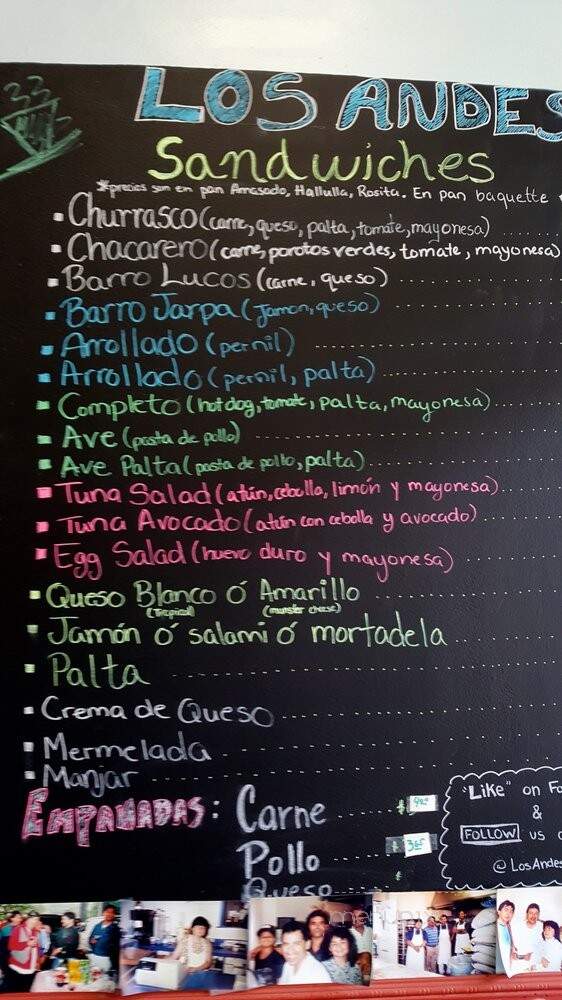 LOS ANDES
Sandwiches
*precios son en pan Amasado, Hallulla, Rosita. En pan baquette
Churrasco (carne, queso, palta, tomate, mayonesa)
Chacarero (carne, porotos verdes, tomate, mayonesa)
Barro Lucos (carne, queso)
Barro Jarpa (Jamon, queso)
Arrollado (pernil)
Arrollado (pernil, palta)
Completo (hot dog, tomate, palta, mayonesa)
Ave (pasta de pollo)
Ave Palta (pasta de pollo, palta)
Tuna Salad (atún, cebolla, limón y mayonesa)
Tuna Avocado (atún con cebolla y avocado)
Egg Salad (huevo duro y mayonesa)
Queso Blanco ó Amarillo
(Tropical) (munster chese)
Jamón ó salami ó mortadela
Palta
Crema de Queso
Mermelada
Manjar
EMPANADAS: Carne $
Pollo $
Queso $
"Like" on Fa
&
FOLLOW us o
@LosAndes